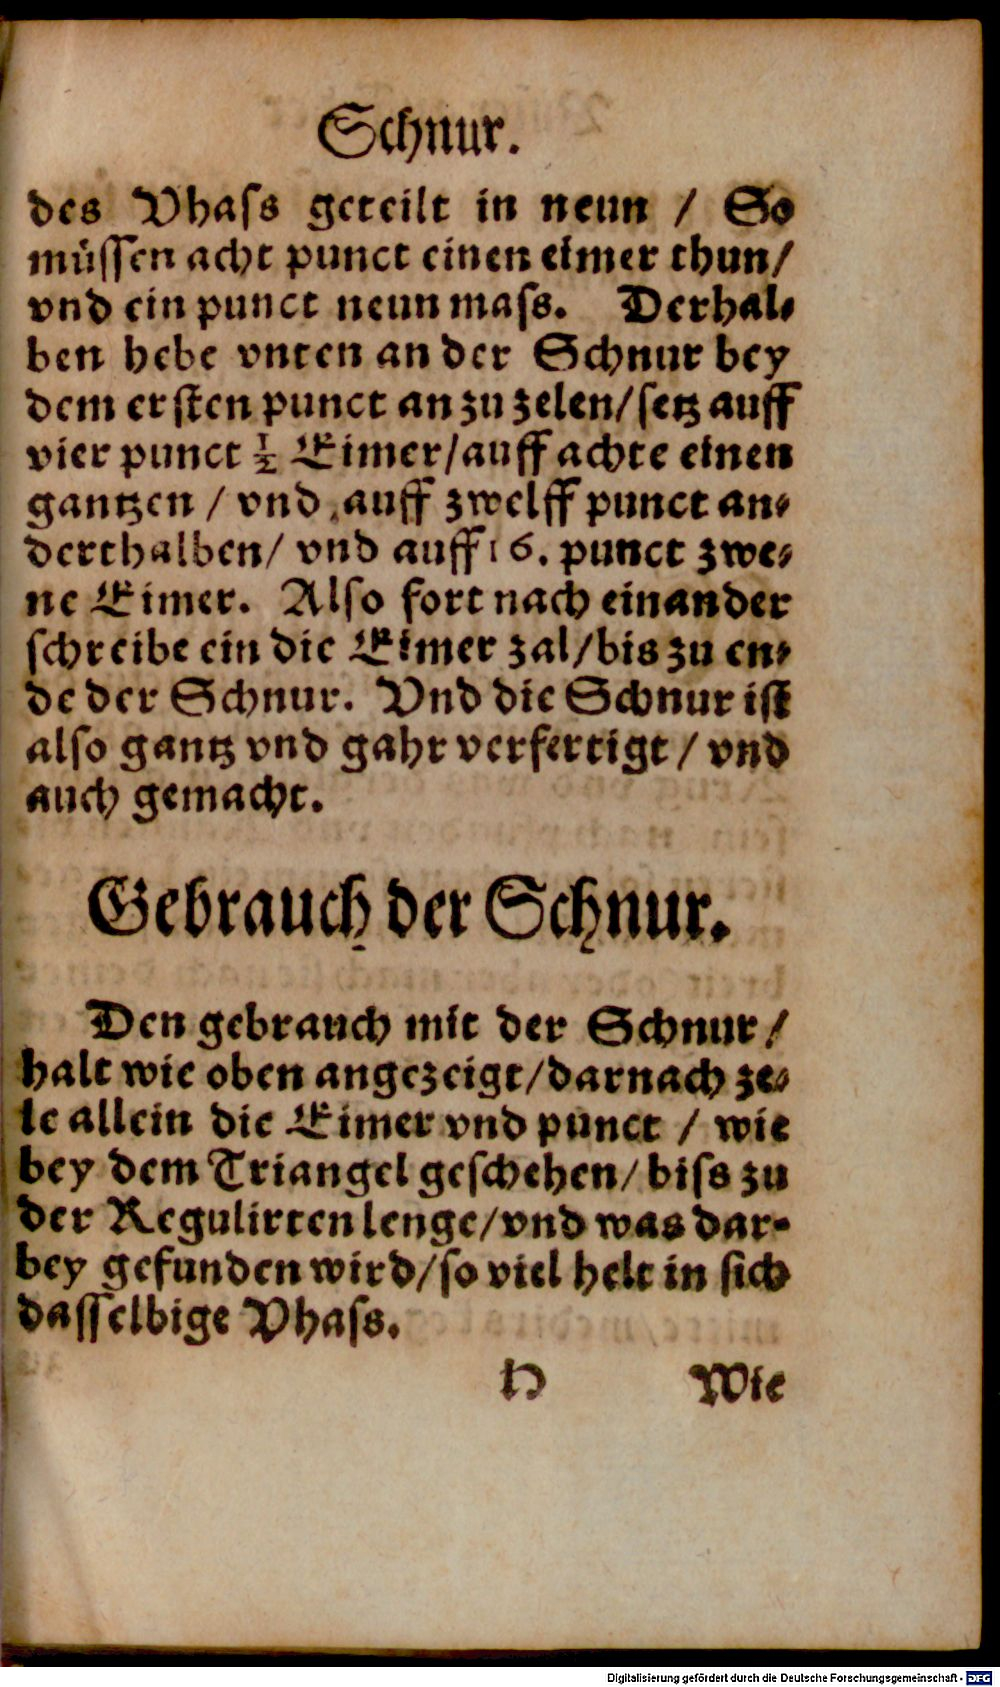 Schnur.
des Vhass geteilt in neun / So
müssen acht punct einen eimer thun/
vnd ein punct neun mass. Derhal-
ben hebe vnten an der Schnur bey
dem ersten punct an zu zelen/setz auff
vier punct ½ Eimer/auff achte einen
gantzen / vnd auff zwelff punct an-
derthalben/ vnd auff 16. punct zwe-
ne Eimer. Also fort nach einander
schreibe ein die Eimer zal/bis zu en-
de der Schnur. Vnd die Schnur ist
also gantz vnd gahr verfertigt / vnd
auch gemacht.
Gebrauch der Schnur.
Den gebrauch mit der Schnur/
halt wie oben angezeigt/darnach ze-
le allein die Eimer vnd punct / wie
bey dem Triangel geschehen/biss zu
der Regulirten lenge/vnd was dar-
bey gefunden wird/so viel helt in sich
dasselbige Vhass.
H Wie
Digitalisierung gefördert durch die Deutsche Forschungsgemeinschaft - DFG